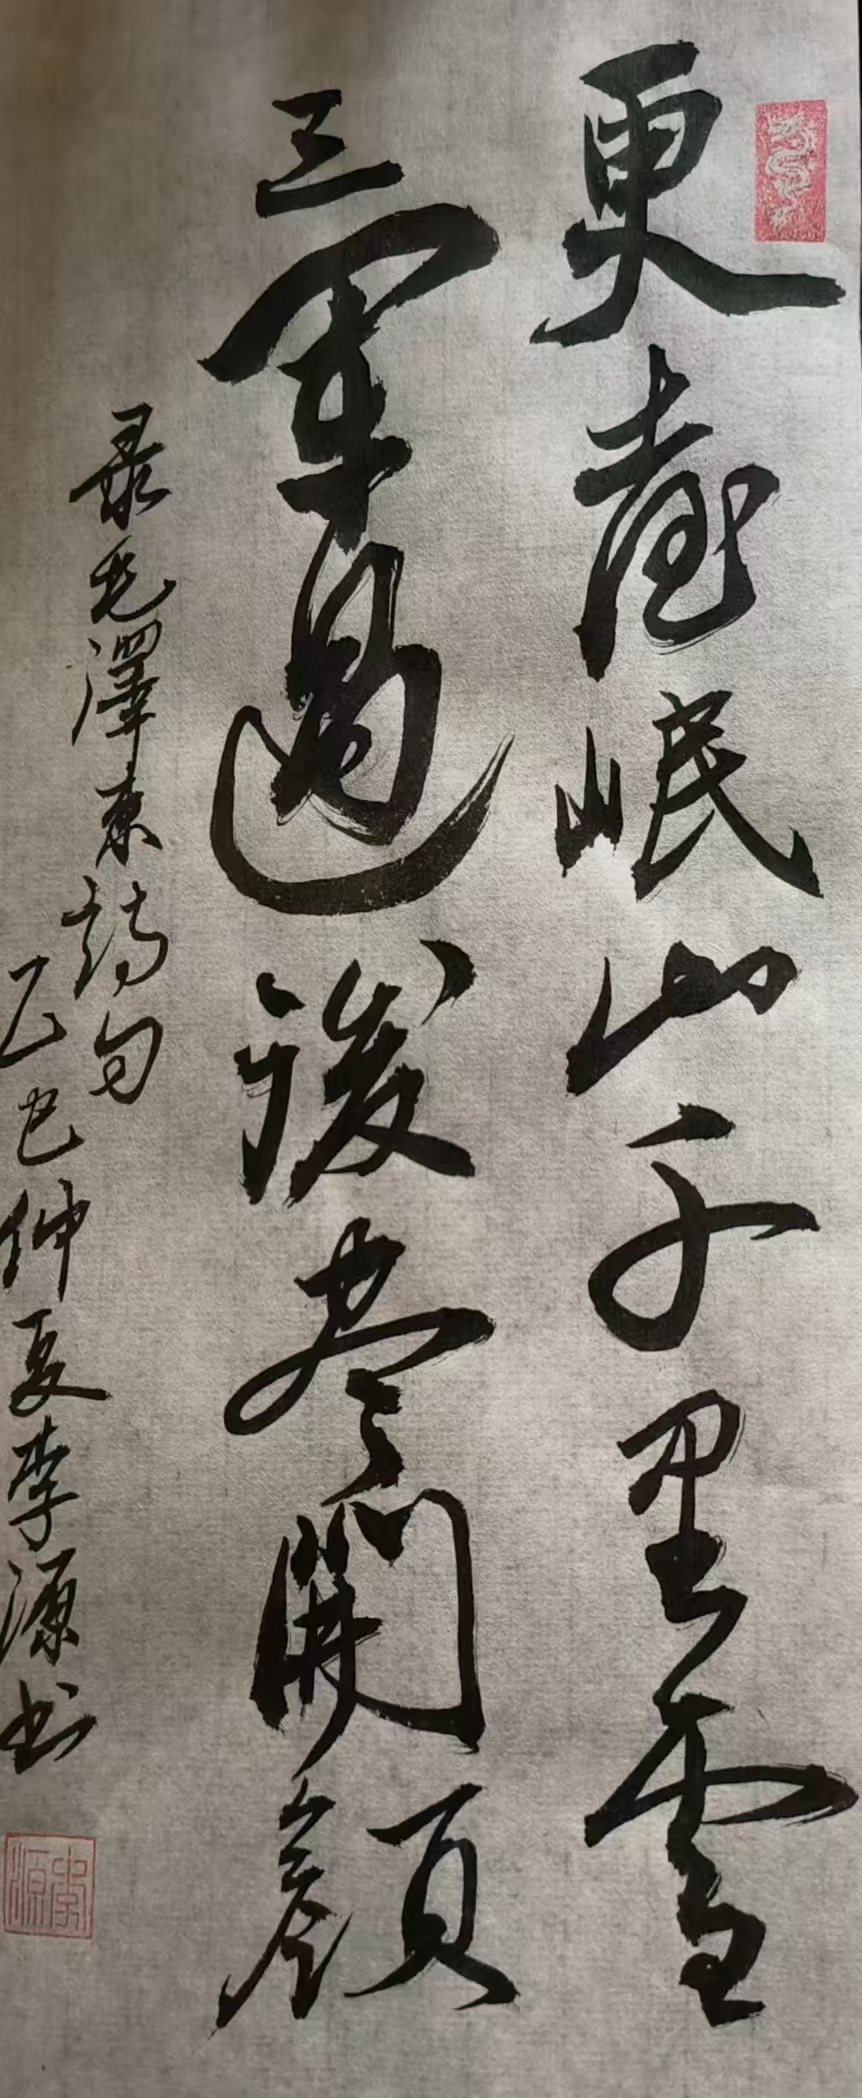 更喜岷山千里雪
三軍過後尽開顔
录毛澤東詩句
乙巳仲夏李源书
李源